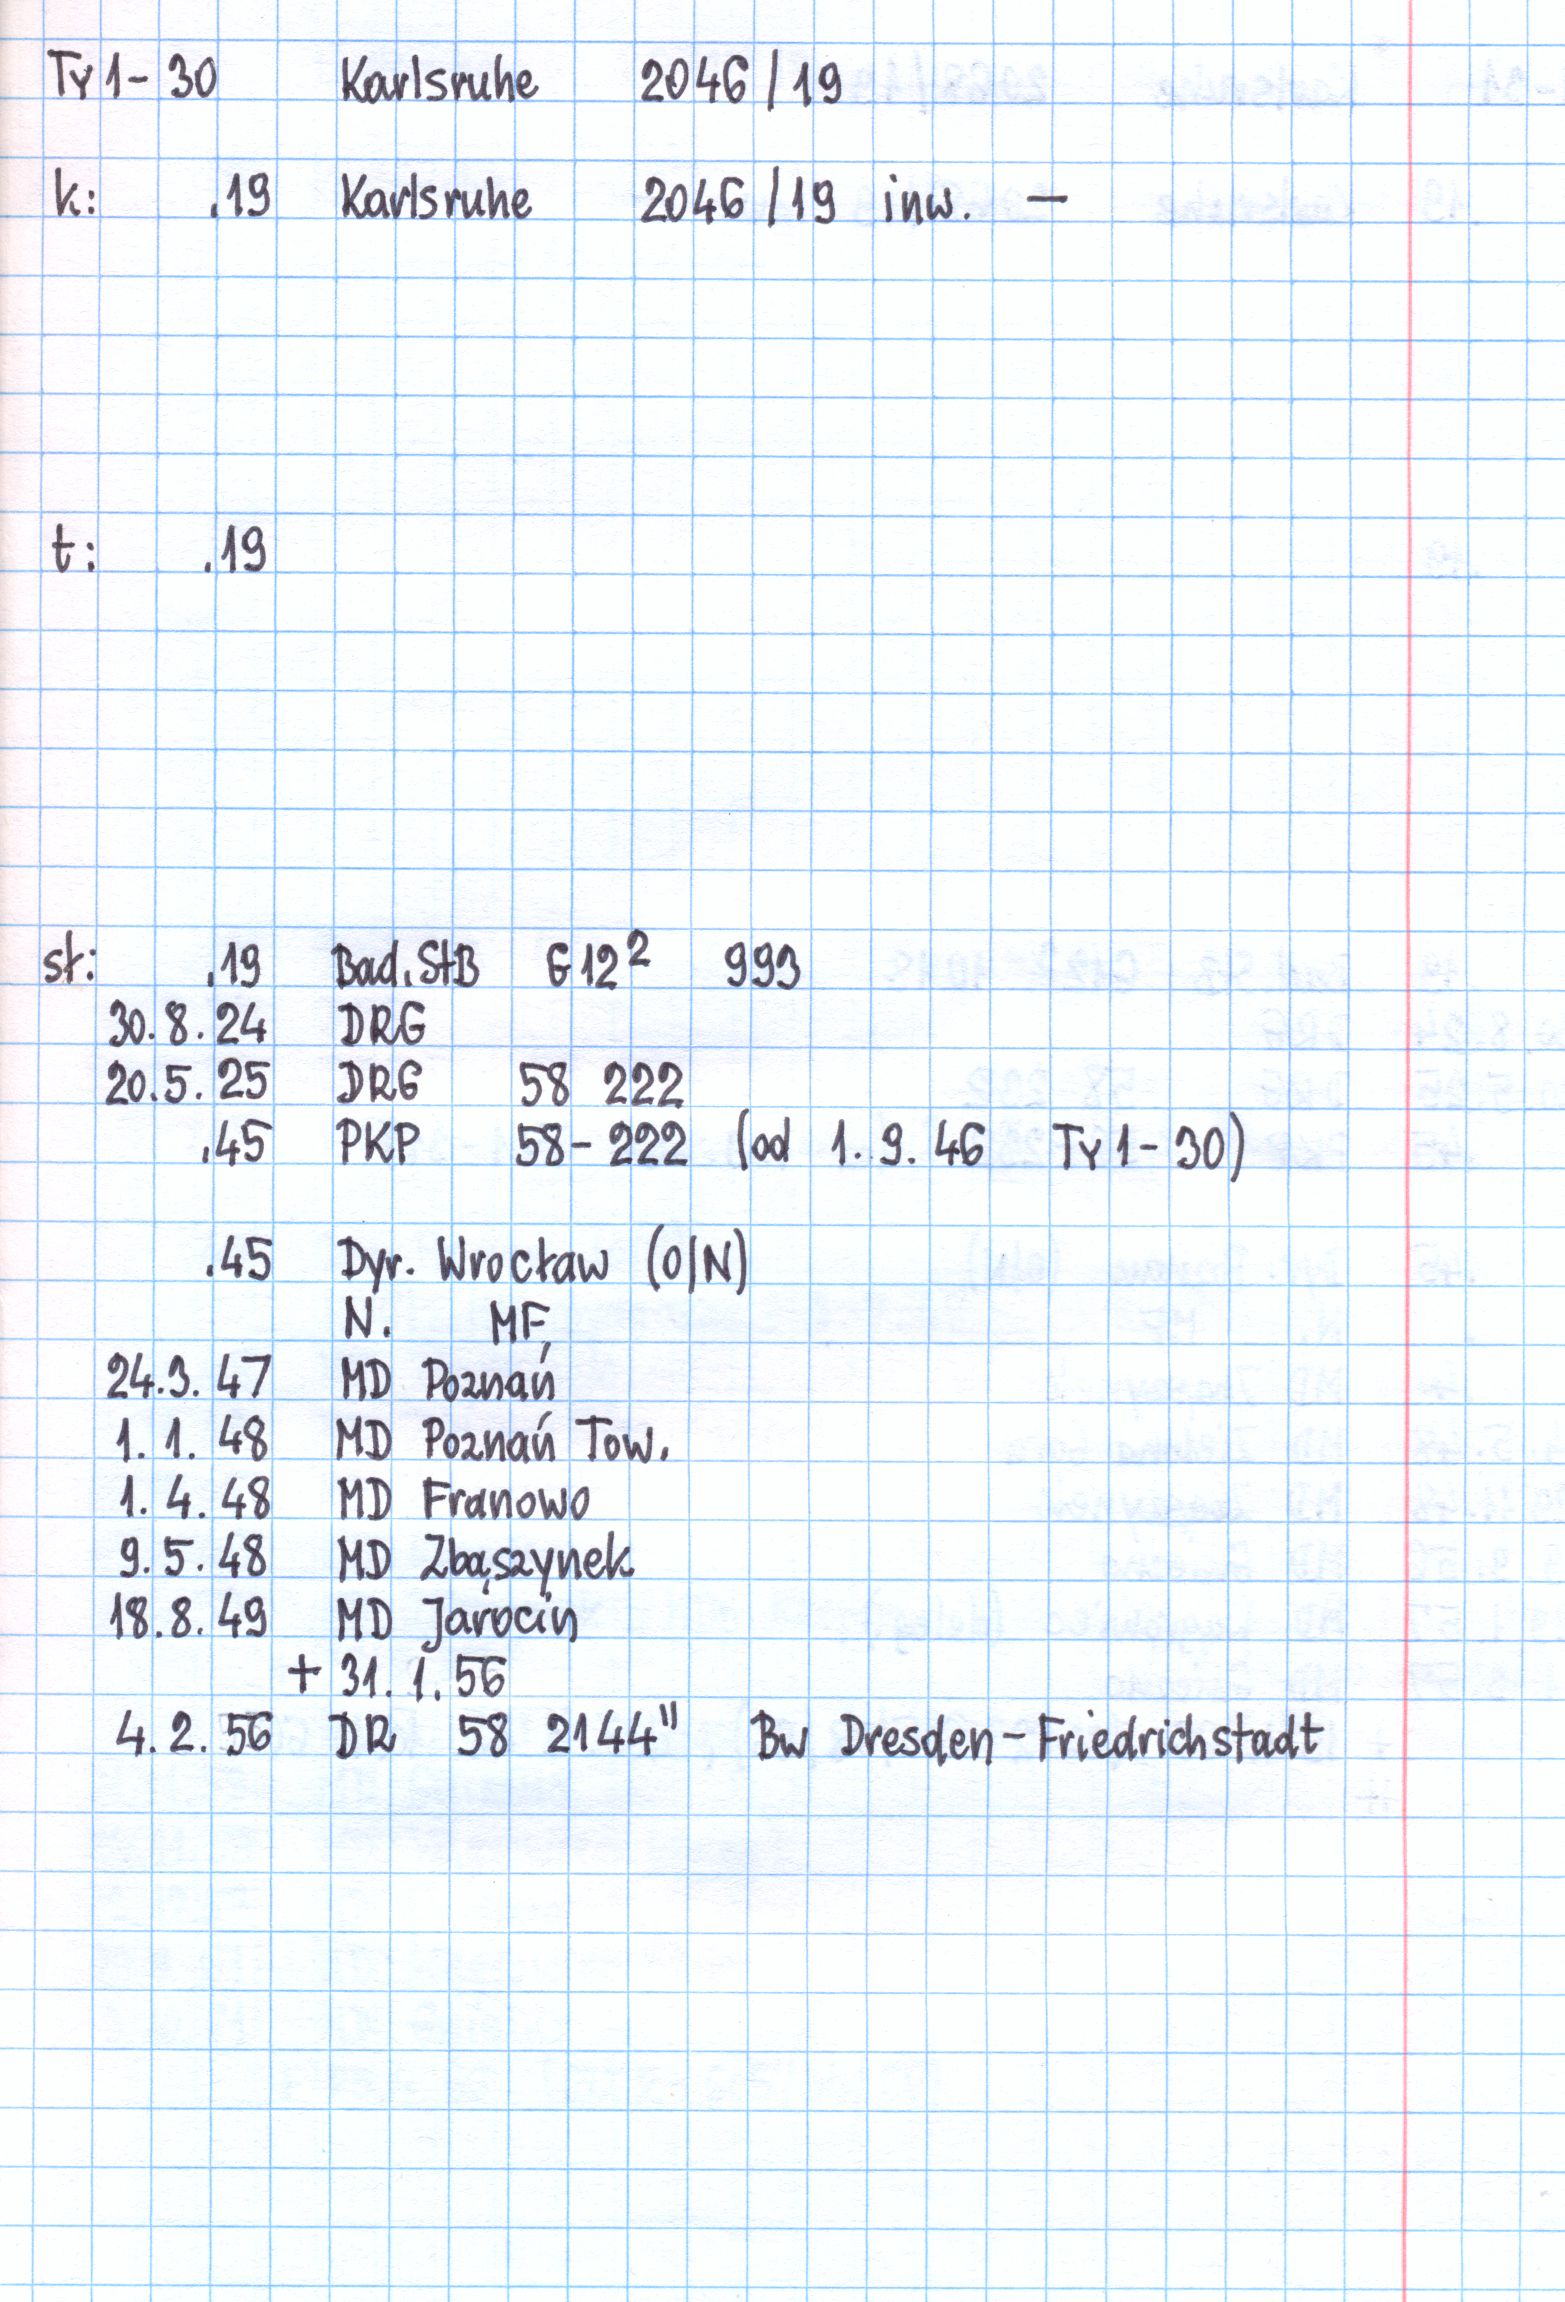 Ty1-30 Karlsruhe 2046/19
k: .19 Karlsruhe 2046/19 inw. —
t: .19
st: .19 Bad.StB G12² 993
30.8.24 DRG
20.5.25 DRG 58 222
.45 PKP 58-222 (od 1.9.46 Ty1-30)
.45 Dyr. Wrocław (O/N)
N. MF
24.3.47 MD Poznań
1.1.48 MD Poznań Tow.
1.4.48 MD Franowo
9.5.48 MD Zbąszynek
18.8.49 MD Jarocin
+ 31.1.56
4.2.56 DR 58 2144" Bw Dresden-Friedrichstadt